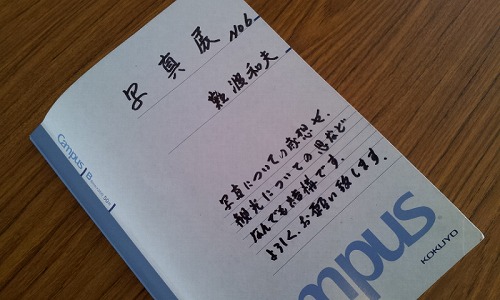 写真展 No6
難波和夫
写真についての感想や、
観光についての思など
なんでも結構です。
よろしく、お願い致します。
Campus
KOKUYO
Campus
B